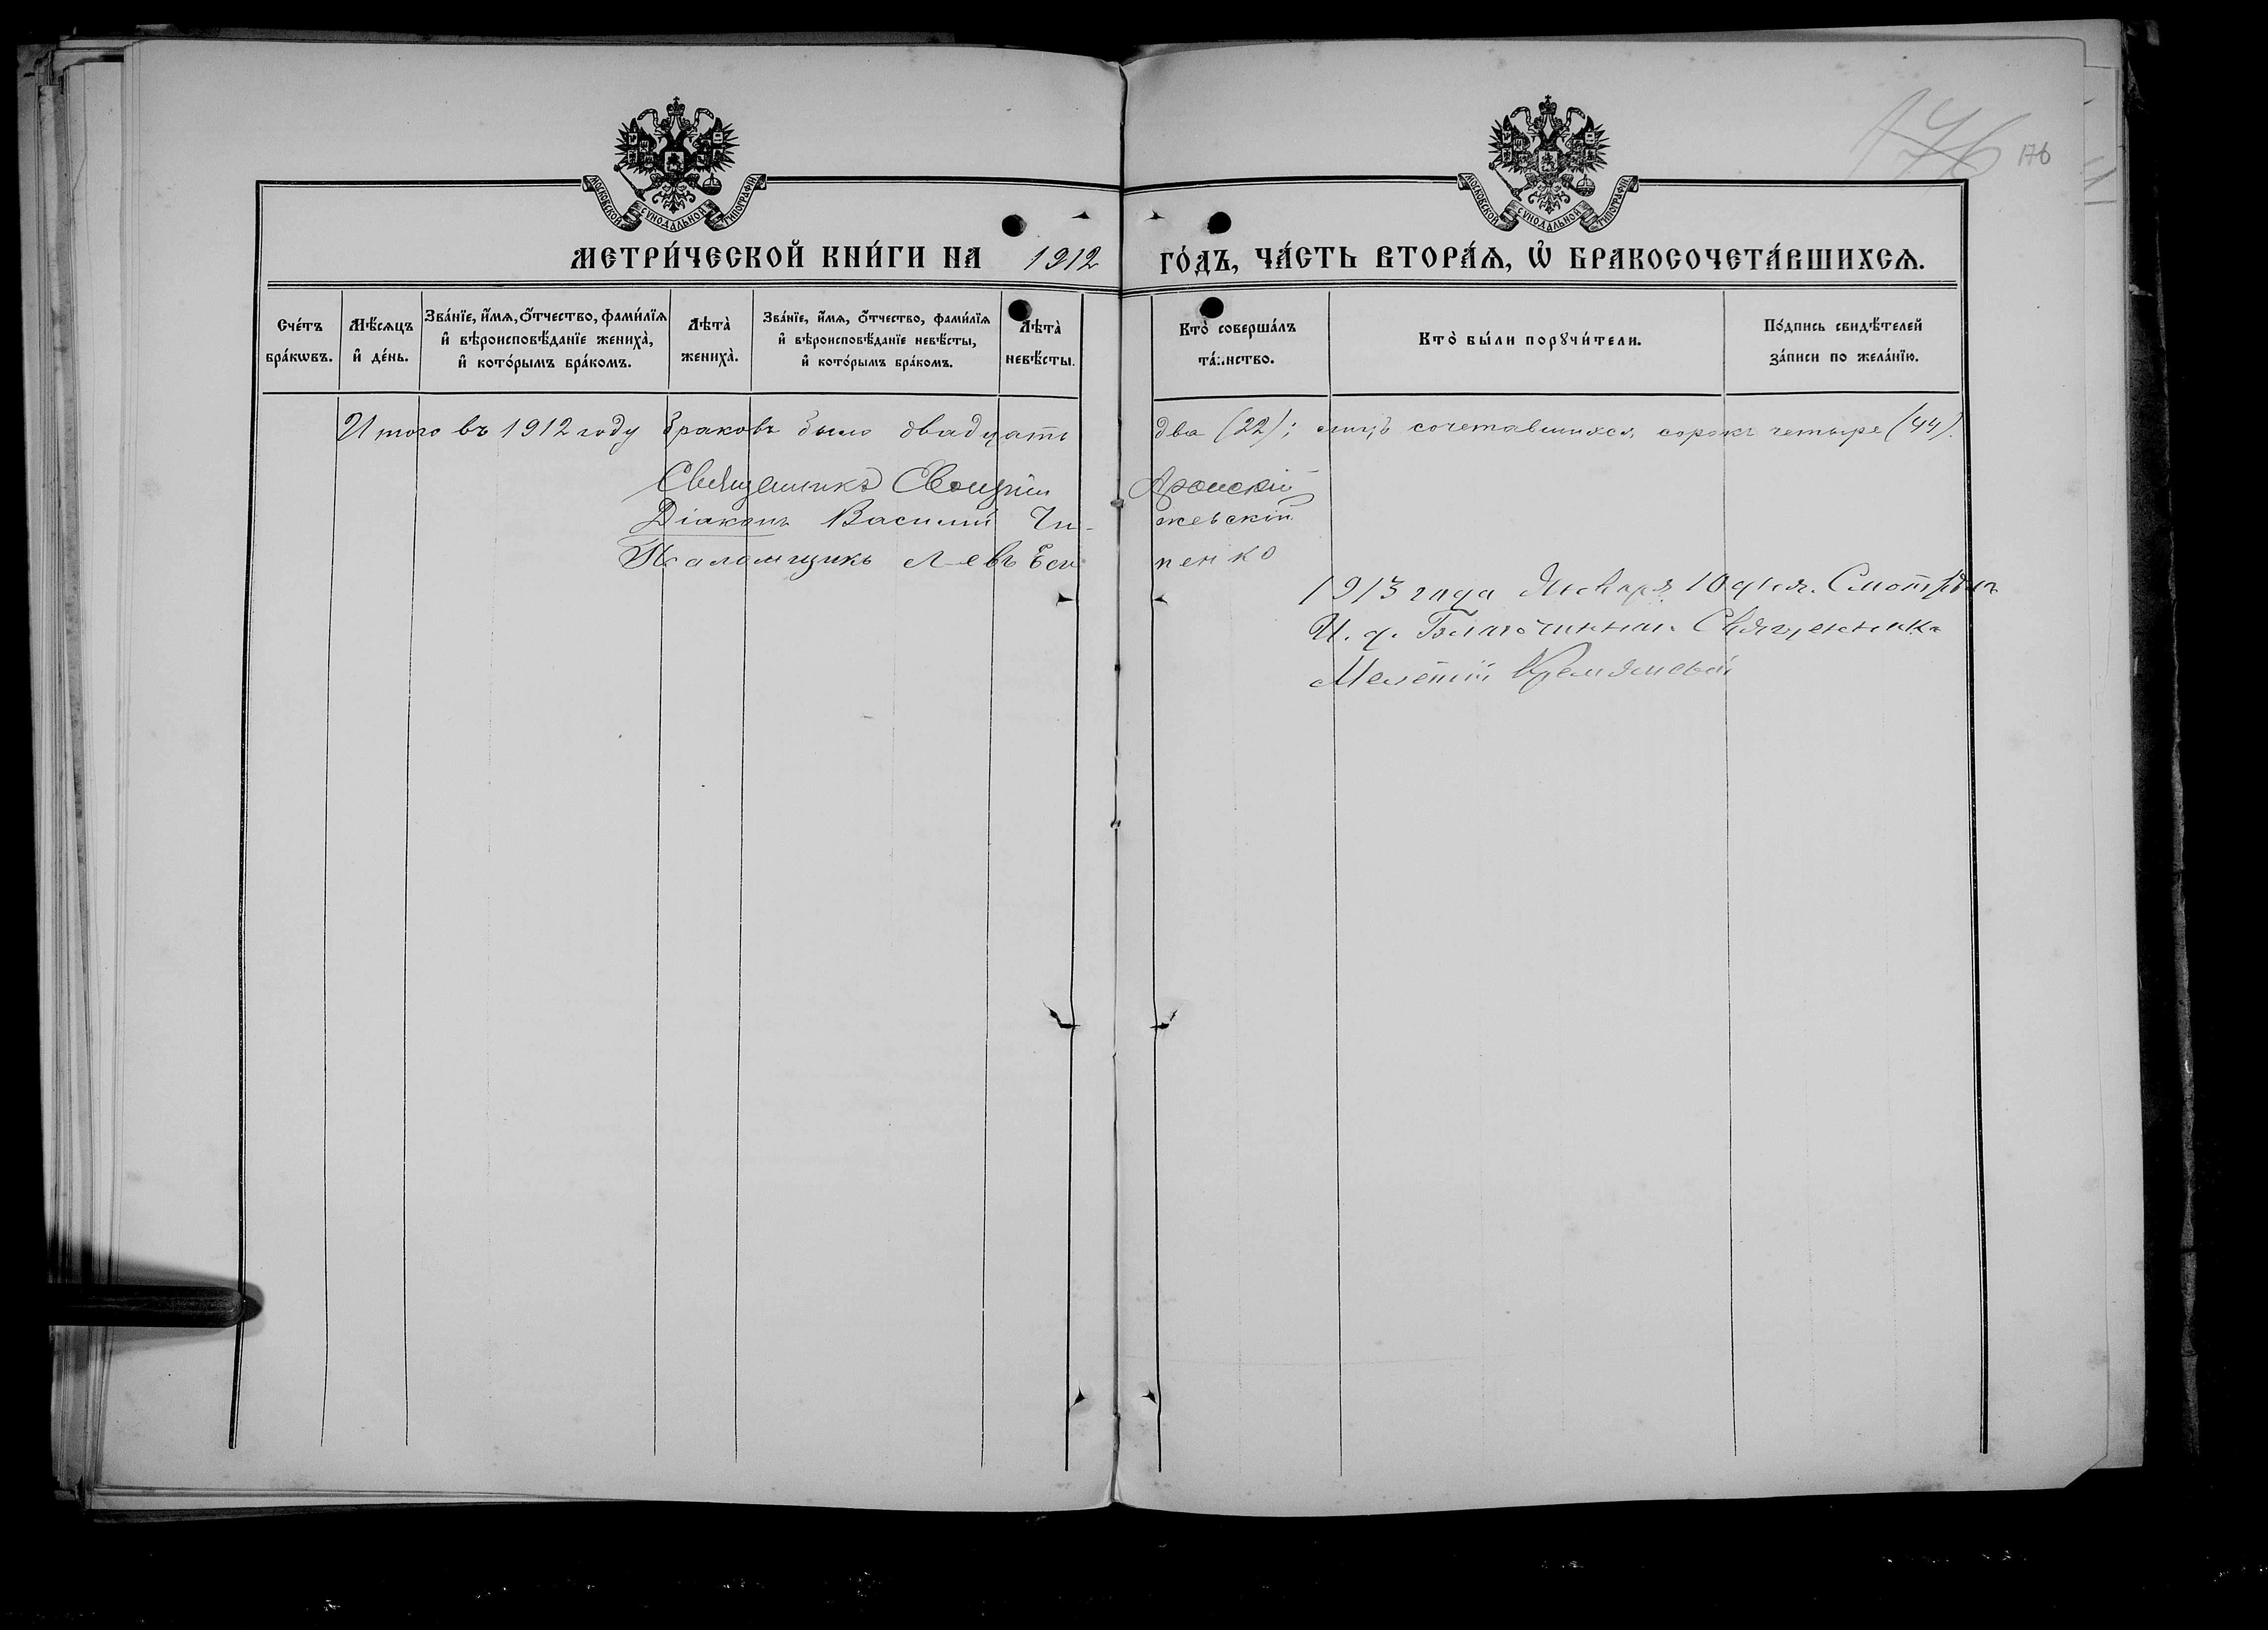 176 176
МОСКОВСКОЙ СѴНОДАЛЬНОЙ ТИПОГРАФІИ
МОСКОВСКОЙ СѴНОДАЛЬНОЙ ТИПОГРАФІИ
МЕТРИ́ЧЕСКОЙ КНИ́ГИ НА 1912 ГО́ДЪ, ЧА́СТЬ ВТОРА́Ѧ, Ѽ БРАКОСОЧЕТА́ВШИХСѦ.
Сче́тъ
бра́кѡвъ.
Мѣ́сѧцъ
и҆ де́нь.
Зва́нїе, и҆́мѧ, о҆́тчество, фами́лїѧ
и҆ вѣроисповѣ́данїе жениха̀,
и҆ кото́рымъ бра́комъ.
Лѣта̀
жениха̀.
Зва́нїе, и҆́мѧ, о҆́тчество, фами́лїѧ
и҆ вѣроисповѣ́данїе невѣ́сты,
и҆ кото́рымъ бра́комъ.
Лѣта̀
невѣ́сты.
Кто̀ соверша́лъ
та́инство.
Кто̀ бы́ли порꙋчи́тели.
По́дпись свидѣ́телей
за́писи по жела́нїю.
Итого въ 1912 году браковъ было двадцать два (22); лицъ сочетавшихся сорокъ четыре (44).
Священникъ
Діаконъ Василий Чи-жевскій
Псаломщикъ Левъ Еси пенко
1913 года Января 10 дня. Смотрѣлъ
И. д. Благочиннаго Священникъ
Мелетій